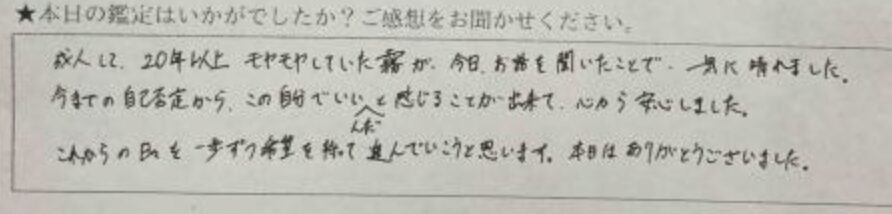 ★本日の鑑定はいかがでしたか？ご感想をお聞かせください。
成人して、20年以上 モヤモヤしていた霧が、今日、お話を聞いたことで、一気に晴れました。
今までの自己否定から、この自分でいいんだと感じることが出来て、心から安心しました。
これからの日々を一歩ずつ希望を持って進んでいこうと思います。本日はありがとうございました。